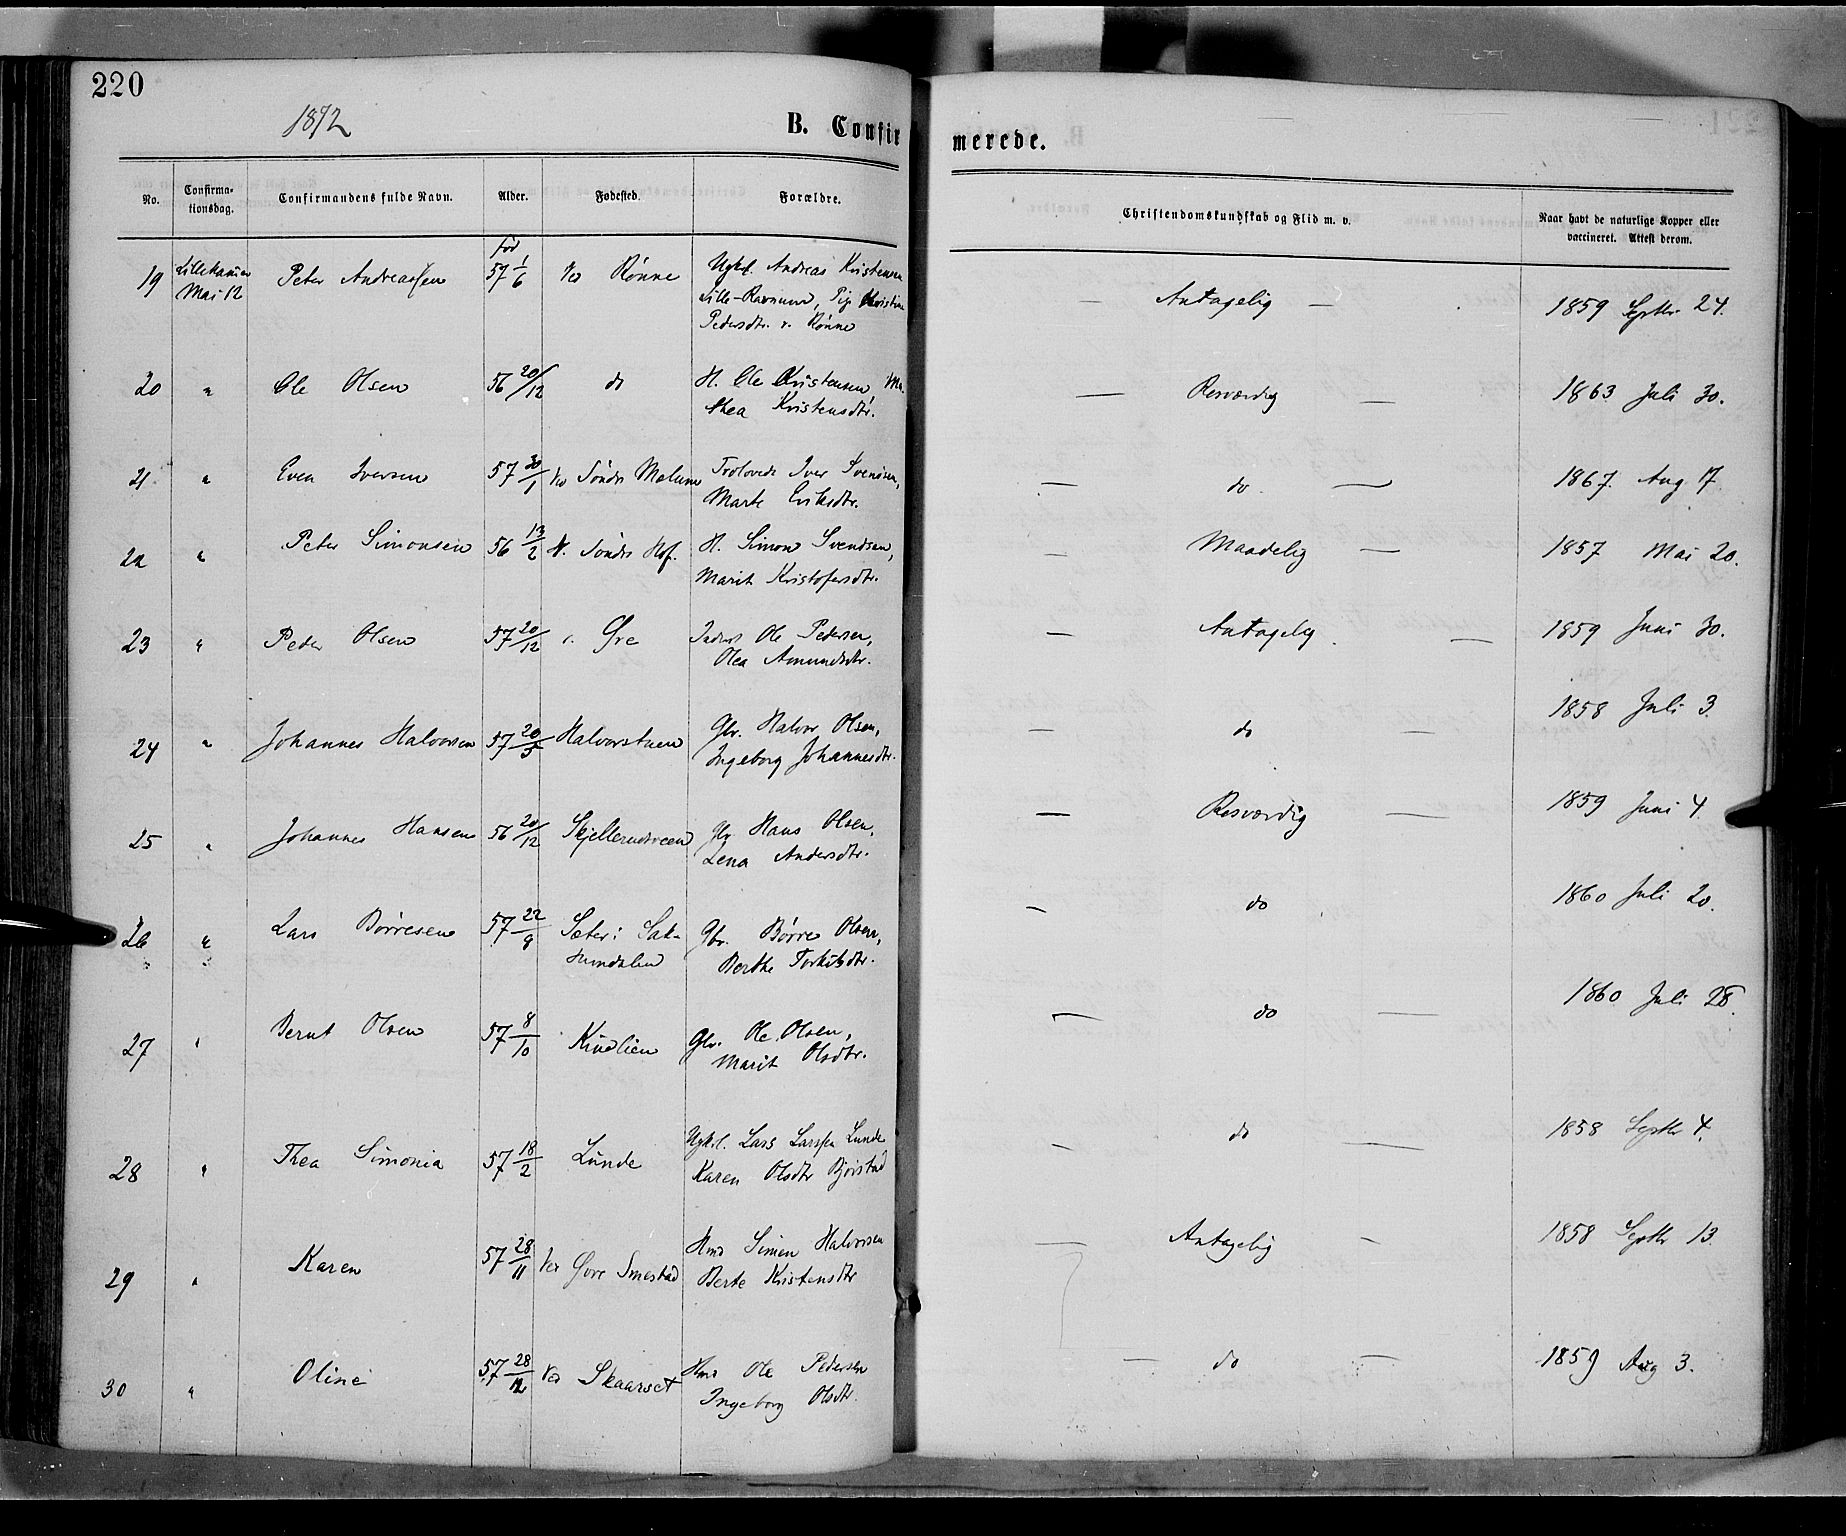 220
1872
B. Confir
merede.
No.
Confirma-
tionsdag.
Confirmandens fulde Navn.
Alder.
Fødested.
Forældre.
Christendomskundskab og Flid m. v.
Naar havt de naturlige Kopper eller
vaccineret. Attest derom.
19 Lillehammer Mai 12 Peter Andreassen fød 57 1/6 Rønne Ugkl. Andreas Kristensen
Pige Kristine
Pedersdtr. v. Rønne
— Antagelig — 1859 Septbr 24.
20 " Ole Olsen 56 20/12 do H. Ole Kristensen, Ma-
thea Kristensdtr.
— Rosværdig — 1863 Juli 30.
21 " Even Iversen 57 30/1 Søndr Trolovede Iver Svendsen,
Marte Eriksdtr.
— do — 1867. Aug 17.
22 " Peter Simonsen 56 13/2 Søndr Hof. H. Simon Svendsen,
Marit Kristofersdtr.
— Maadelig — 1857 Mai 20.
23 " Peter Olsen 57 20/12 Øre Inderst Ole Pedersen,
Olea Amundsdtr.
— Antagelig. — 1859 Juni 30.
24 " Johannes Halvorsen 57 20/5 Halvorstuen Gbr. Halvor Olsen,
Ingeborg Johannesdtr.
— do — 1858 Juli 3.
25 " Johannes Hansen 56 20/12 Gbr Hans Olsen,
Lena Andersdtr.
— Rosværdig — 1859 Juni 4.
26 " Lars Børresen 57 22/9 Sæter i Sak-
sumdalen Gbr. Børre Olsen,
Berthe Torkildsdtr.
— do 1860 Juli 20.
27 " Bernt Olsen 57 8/10 Kindlien Gbr. Ole Olsen,
Marit Olsdtr.
— do — 1860 Juli 28.
28 " Thea Simonia 57 18/2 Lunde Ugkl. Lars Larssen Lunde
Karen Olsdtr Bjørstad
— do — 1858 Septbr 4.
29 " Karen 57 28/11 Ved Øvre Smestad Hmd Simen Halvorsen
Berte Kristensdtr
— Antagelig — 1858 Septbr 13.
30 " Oline 57 28/12 Ved Skaarset Hmd Ole Pedersen
Ingeborg Olsdtr.
— do — 1859 Aug 3.